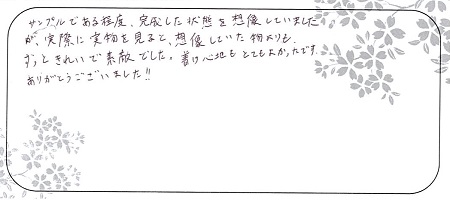 サンプルである程度、完成した状態を想像していました
が、実際に実物を見ると、想像していた物よりも、
ずっときれいで素敵でした。着け心地もとてもよかったです。
ありがとうございました!!